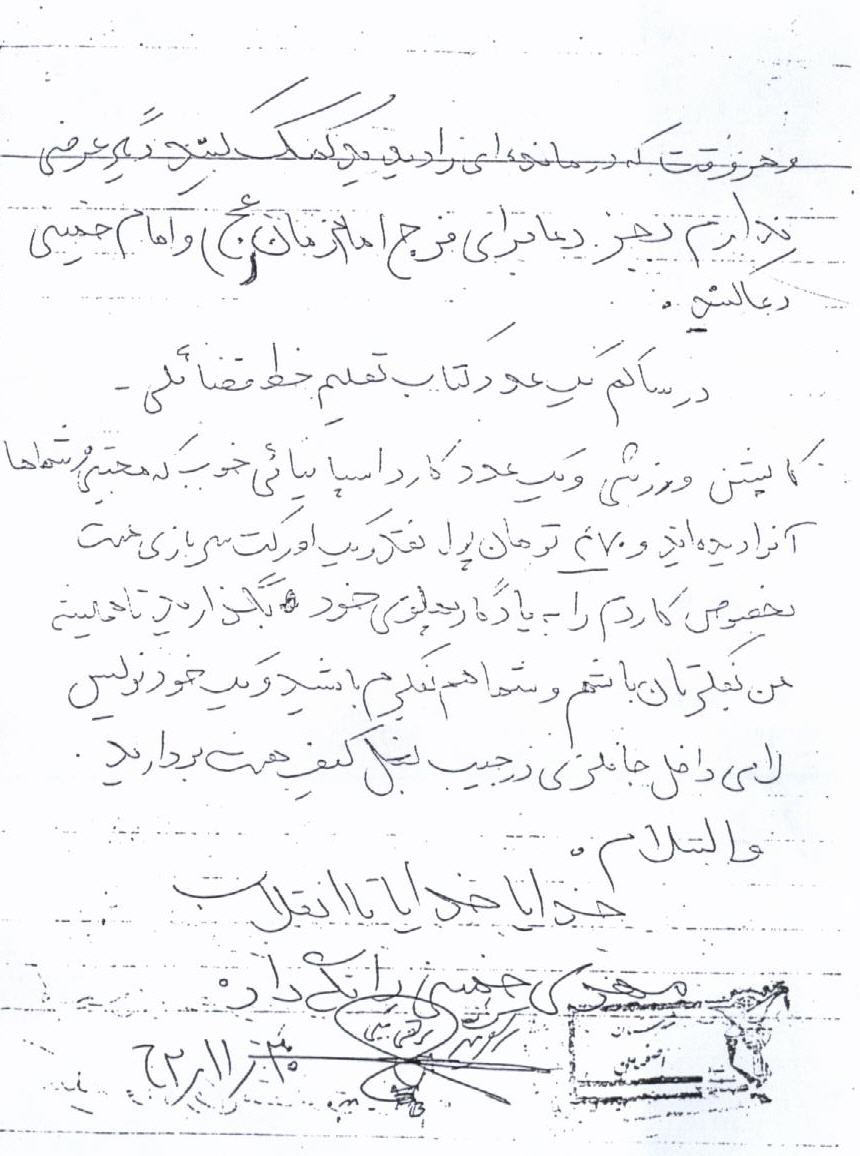 و هر وقت که درمانده‌ای را دیدید کمک کنید دگر عرضی
ندارم بجز دعا برای فرج امام زمان (عج) و امام خمینی
دعا کنید.
در ساکم یک عدد کتاب تعلیم خط فضائلی -
کاپشن ورزشی و یک عدد کارد اسپانیائی خوب که مجتبی و شماها
آنرا دیده‌اید و ۷۰ تومان پول نقد و یک اورکت سربازی هست
بخصوص کاردم را به یادگار پهلوی خود نگذارید تا همیشه
من بفکرتان باشم و شما هم بفکرم باشید و یک خودنویس
لامی داخل جانمازی در جیب بغل کیف هست بردارید.
والسلام.
خدایا خدایا تا انقلاب
مهدی خمینی را نگه دار
۶۲/۱۱/۳۰